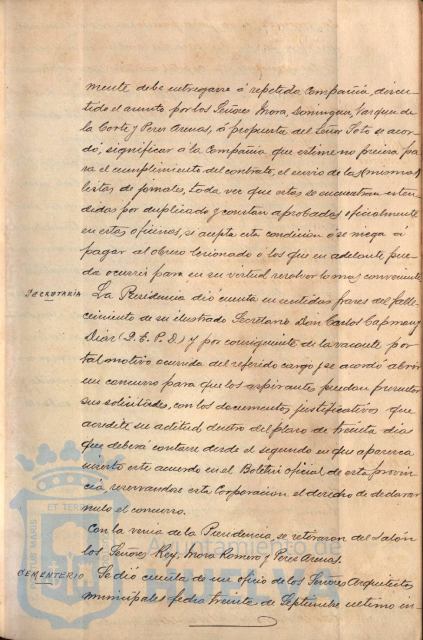 mente debe entregarse á repetida Compañia, discu-
tido el asunto por los Señores Mora, Dominguez, Vazquez de
la Corte y Perez Arenas, á propuesta del Señor Soto se acor-
dó, significar á la Compañia que estime no precisa pa-
ra el cumplimiento del contrato, el envio de las mismas
listas de jornales, toda vez que estas se encuentran esten-
didas por duplicado y constan aprobadas oficialmente
en estas oficinas, si acepta esta condición ó se niega á
pagar al obrero lesionado ó los que en adelante pue-
da ocurrir para en su virtud resolver lo mas conveniente
SECRETARIA La Presidencia dió cuenta en sentidas frases del falle-
cimiento de su ilustrado Secretario Don Carlos Capman y
Diaz (Q. E. P. D.) y por consiguiente de la vacante por
tal motivo ocurrida del referido cargo y se acordó abrir
un concurso para que los aspirantes puedan presentar
sus solicitudes, con los documentos justificativos que
acredite su actitud dentro del plazo de treinta dias
que deberá contarse desde el segundo en que aparezca
inserto este acuerdo en el Boletin oficial de esta provin-
cia, reservandose esta Corporacion el derecho de declarar
nulo el concurso.
Con la venia de la Presidencia, se retiraron del Salón
los Señores Rey, Mora Romero y Perez Arenas.
CEMENTERIO Se dió cuenta de un oficio de los Señores Arquitectos
municipales fecha treinta de Septiembre ultimo in-